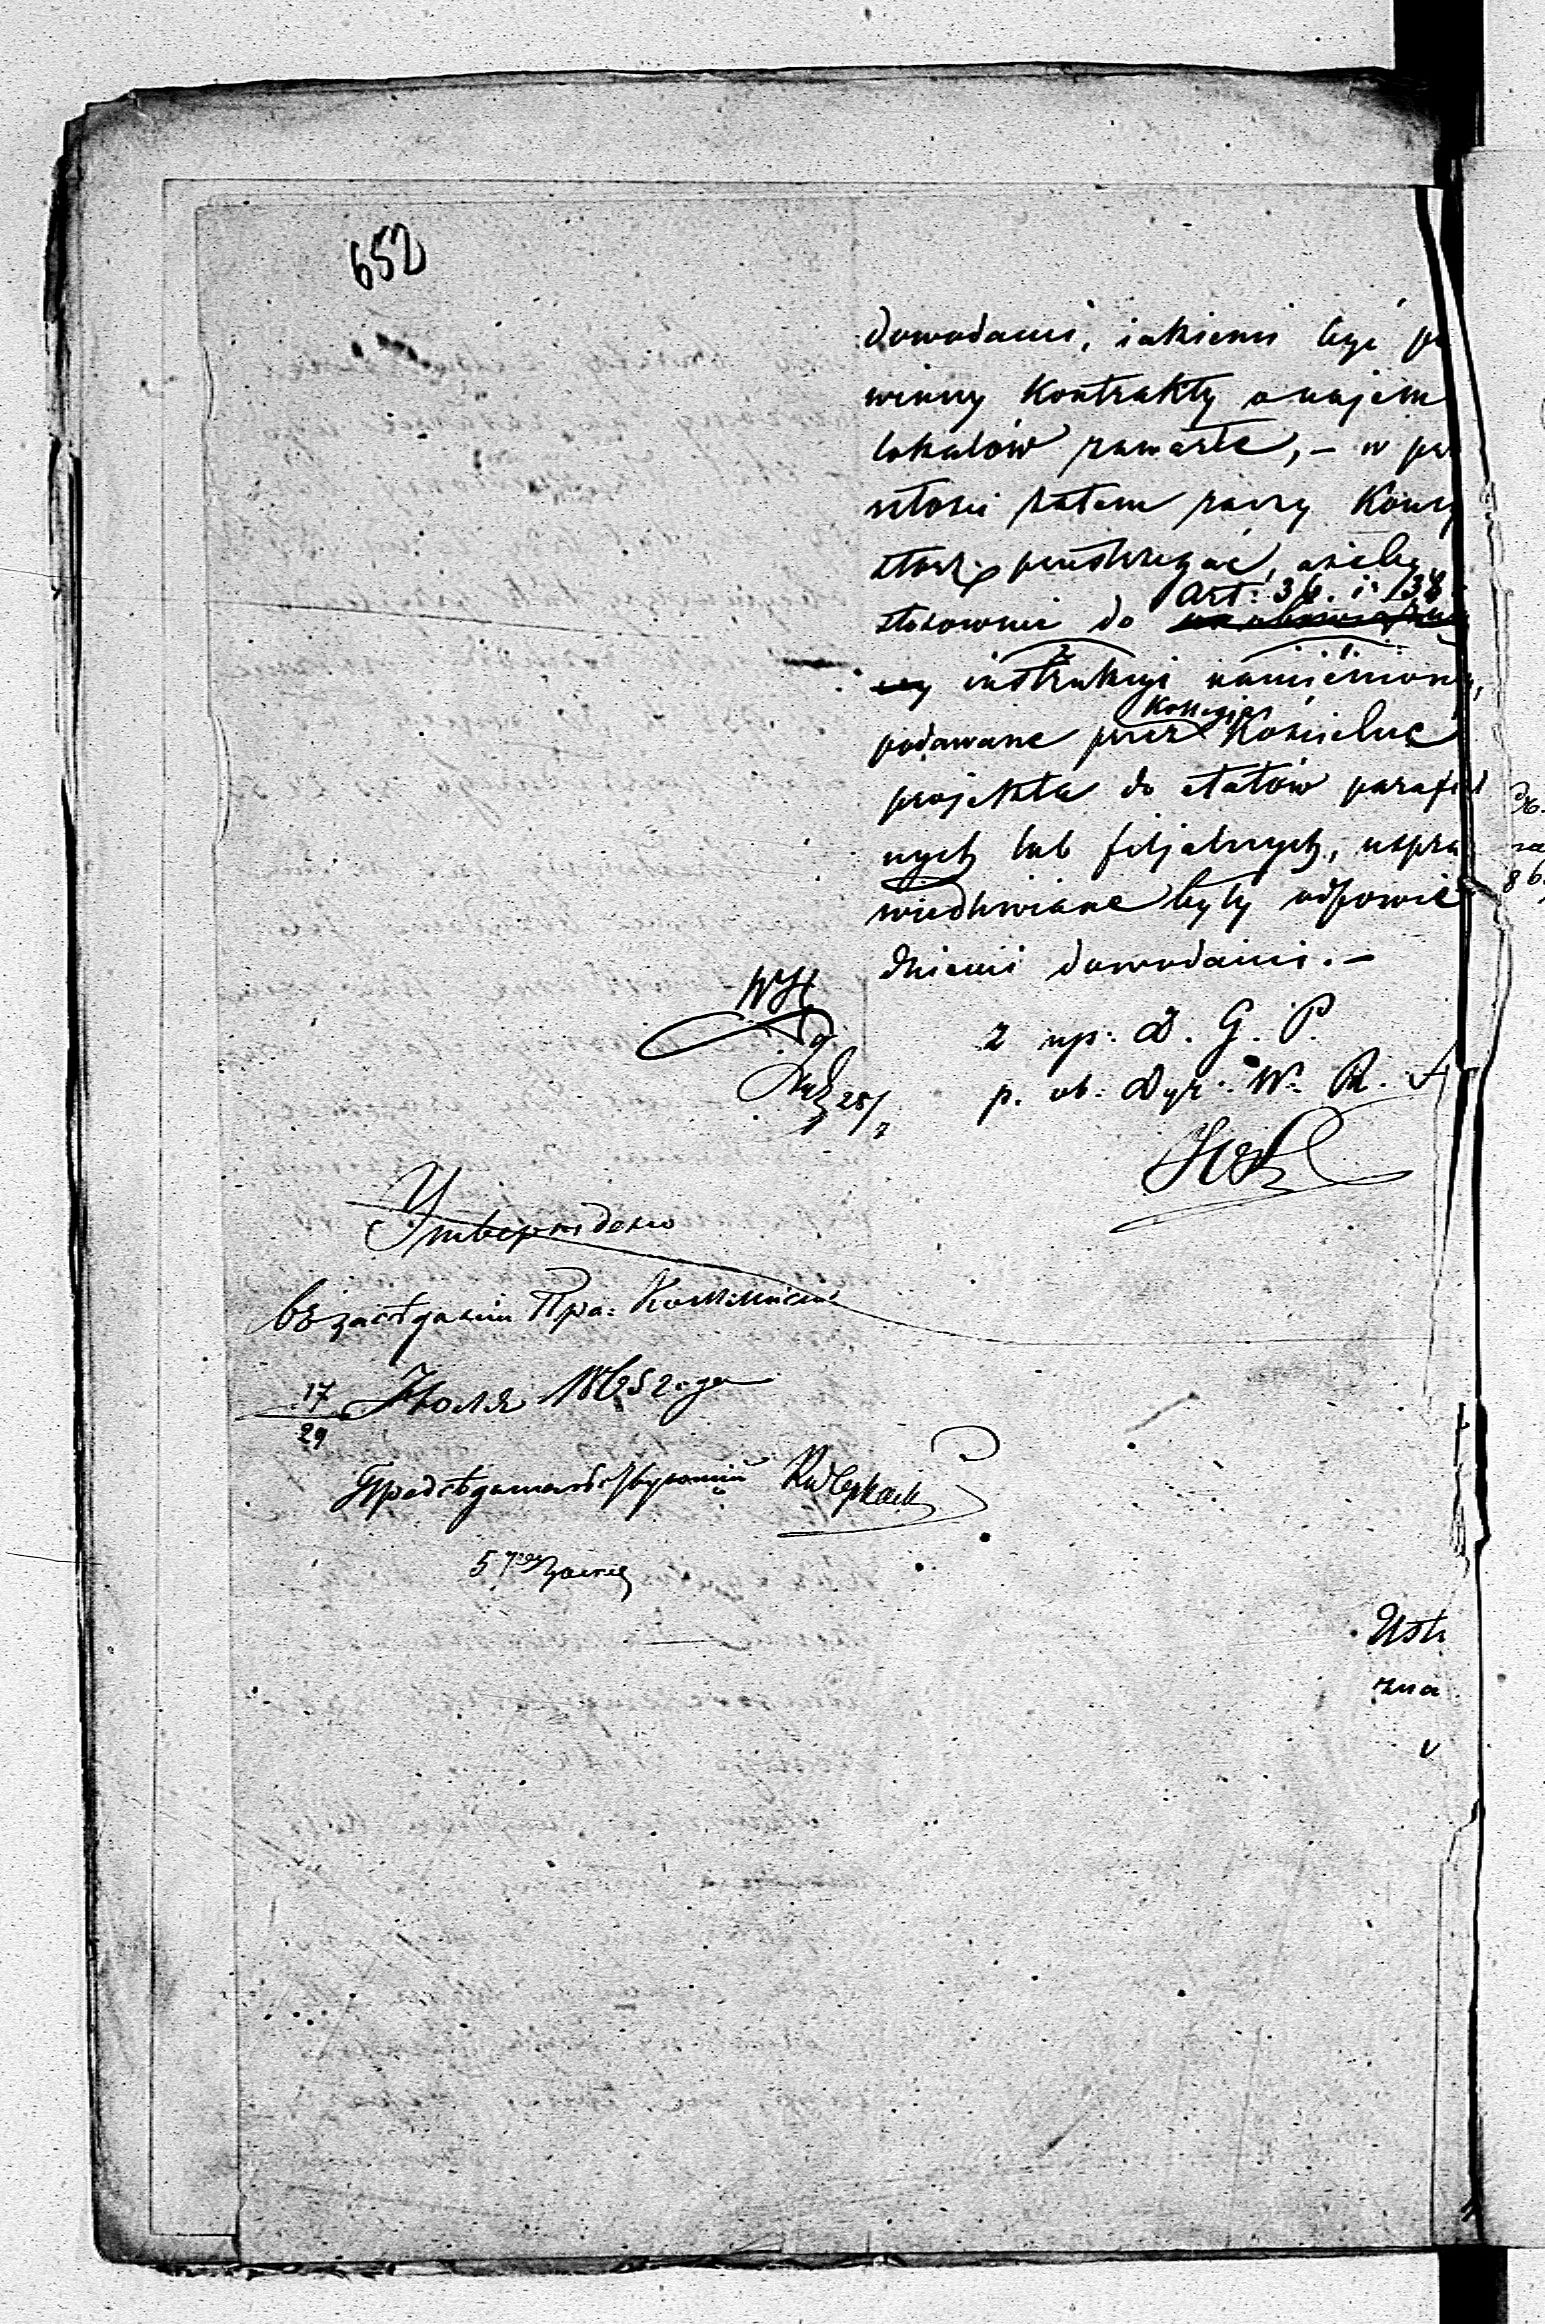 652
dowodami, iakiemi być po
winny Kontrakty o najem
lokalów zawarte, – w prz
szłosci zatem raczy Konsy
storz przestrzegać, ażeby
Art: 36. i 138
stosownie do
instrukcyi namienioney,
Kollegia
podawane przez Kościelne
projekta do etatów parafial
nych lub filjalnych, uspra
wiedliwiane były odpowie
dniemi dowodami. –
z up: D. G. P.
p. ob: Dyr: W. R.
28/7
Утверждено
въ засѣданіи Пра: Коммисіи
17/29 Іюля 1865 года
Предсѣдательствующій
Usk
zna